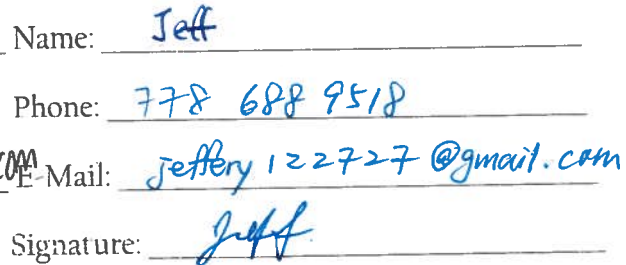 Name: Jeff
Phone: 778 688 9518
com E-Mail: jeffery122727@gmail.com
Signature: Jeff